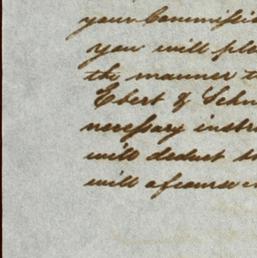 your Commissio
you will ple
the manner t
Ebert & Schn
necessary instru
will deduct th
will of course